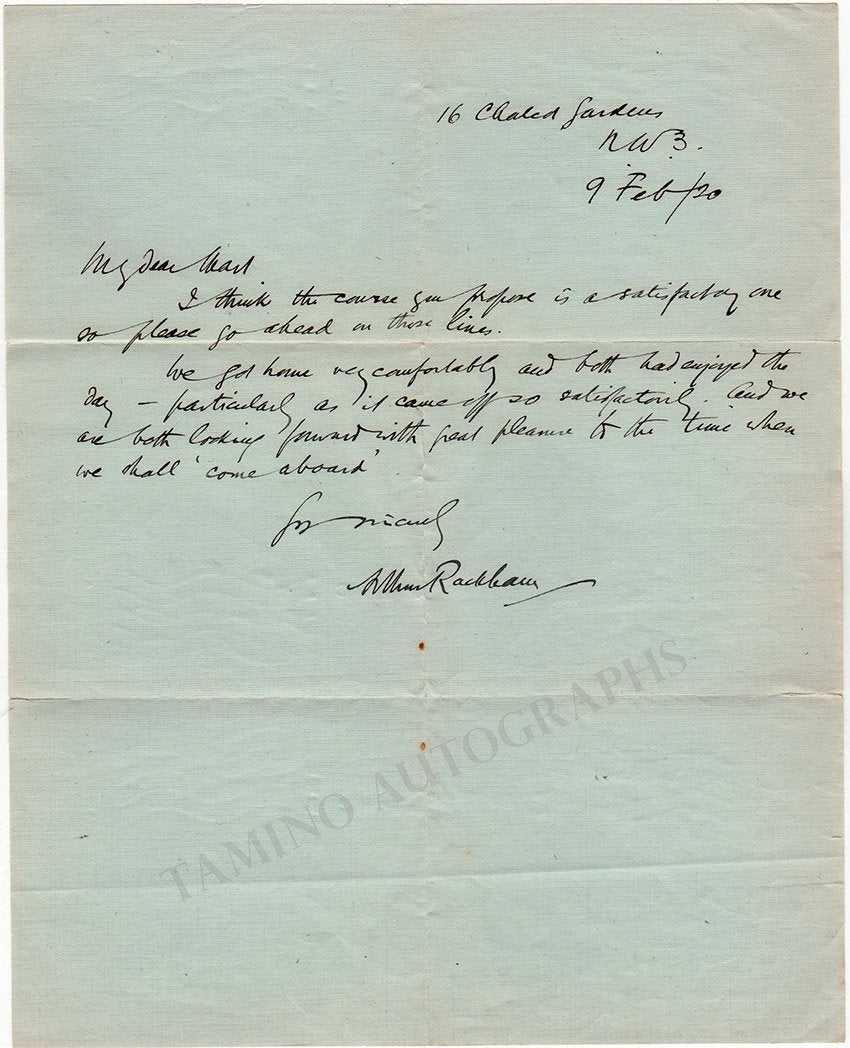 16 Chalcot Gardens
N.W.3.
9 Feb/20
My dear
I think the course you propose is a satisfactory one
so please go ahead on those lines.
We got home very comfortably and both had enjoyed the
day – particularly as it came off so satisfactorily. And we
are both looking forward with great pleasure to the time when
we shall 'come aboard'.
Yrs sincerely
Arthur Rackham
TAMINO AUTOGRAPHS